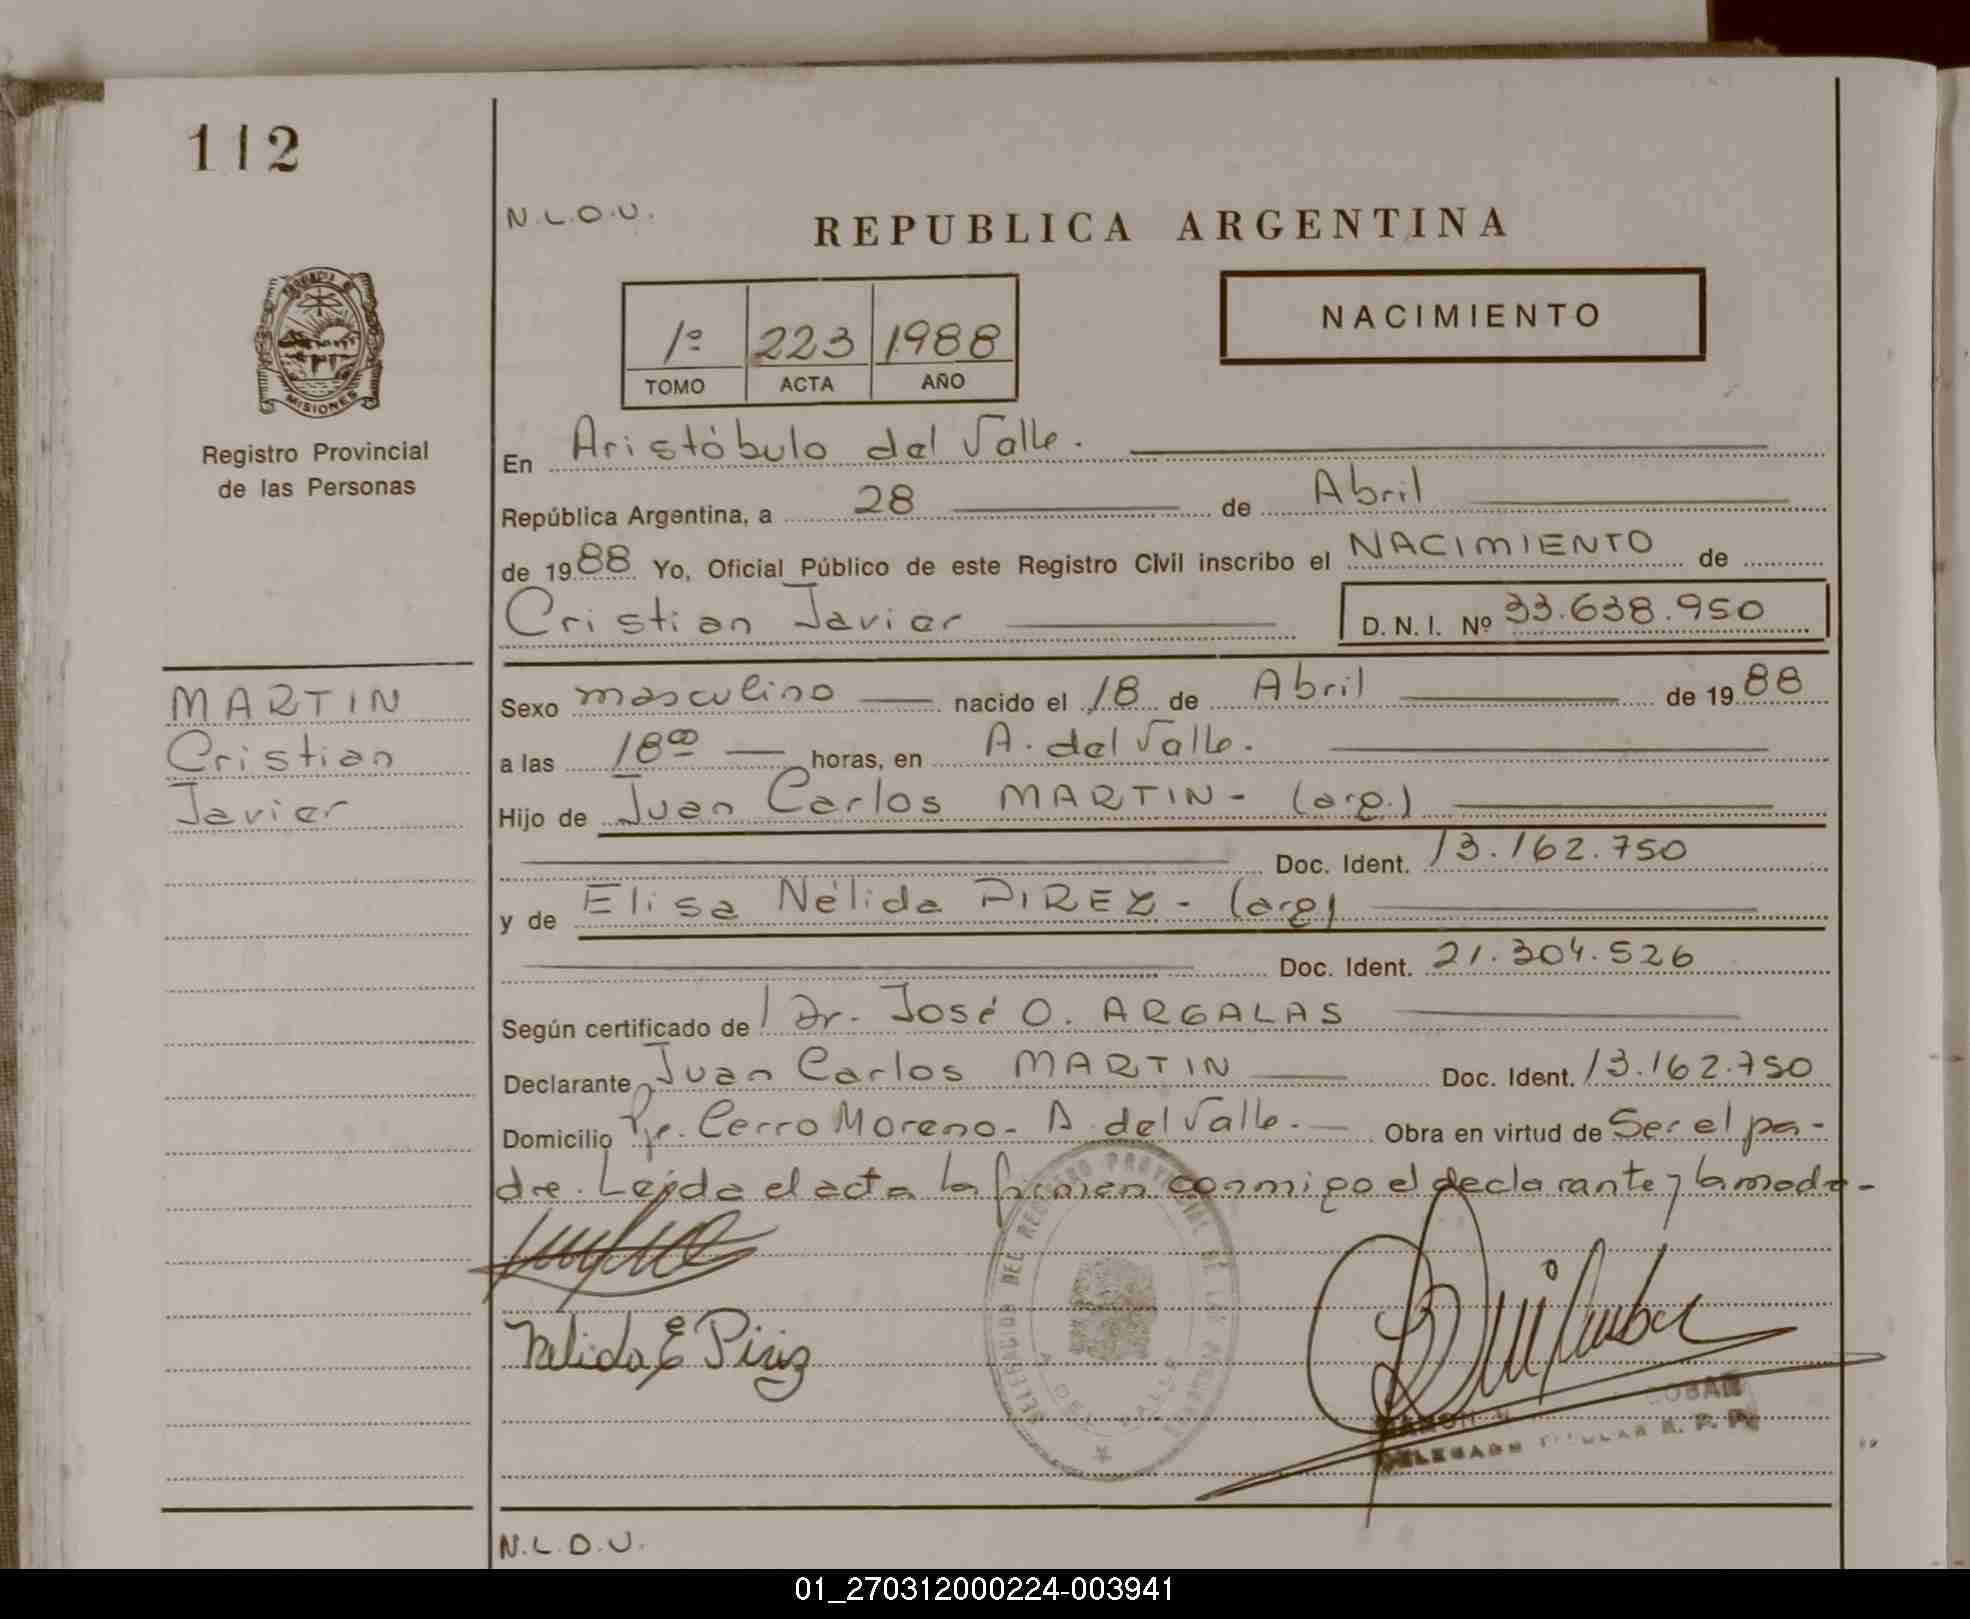 112
N.L.O.U.
REPUBLICA ARGENTINA
PROVINCIA D MISIONES
Registro Provincial
de las Personas
1º 223 1988
TOMO ACTA AÑO
NACIMIENTO
En Aristóbulo del Valle.
República Argentina, a 28 de Abril
de 1988 Yo, Oficial Público de este Registro Civil inscribo el NACIMIENTO de
Cristian Javier D.N.I. Nº 33.638.950
MARTIN
Cristian
Javier
Sexo masculino nacido el 18 de Abril de 1988
a las 18 00 horas, en A. del Valle.
Hijo de Juan Carlos MARTIN - (arg.)
Doc. Ident. 13.162.750
y de Elisa Nélida PIREZ - (arg)
Doc. Ident. 21.304.526
Según certificado de Dr. José O. ARGALAS
Declarante Juan Carlos MARTIN Doc. Ident. 13.162.750
Domicilio Cerro Moreno - A. del Valle. - Obra en virtud de Ser el pa-
dre. Leída el acta la firman conmigo el declarante y la madre -
Nelida E Piriz
DELEGACION DEL REGISTRO PROVINCIAL DE LAS PERSONAS
A. DEL VALLE
RAMON
DELEGADO TITULAR R. P. P.
N.L.O.U.
01_270312000224-003941